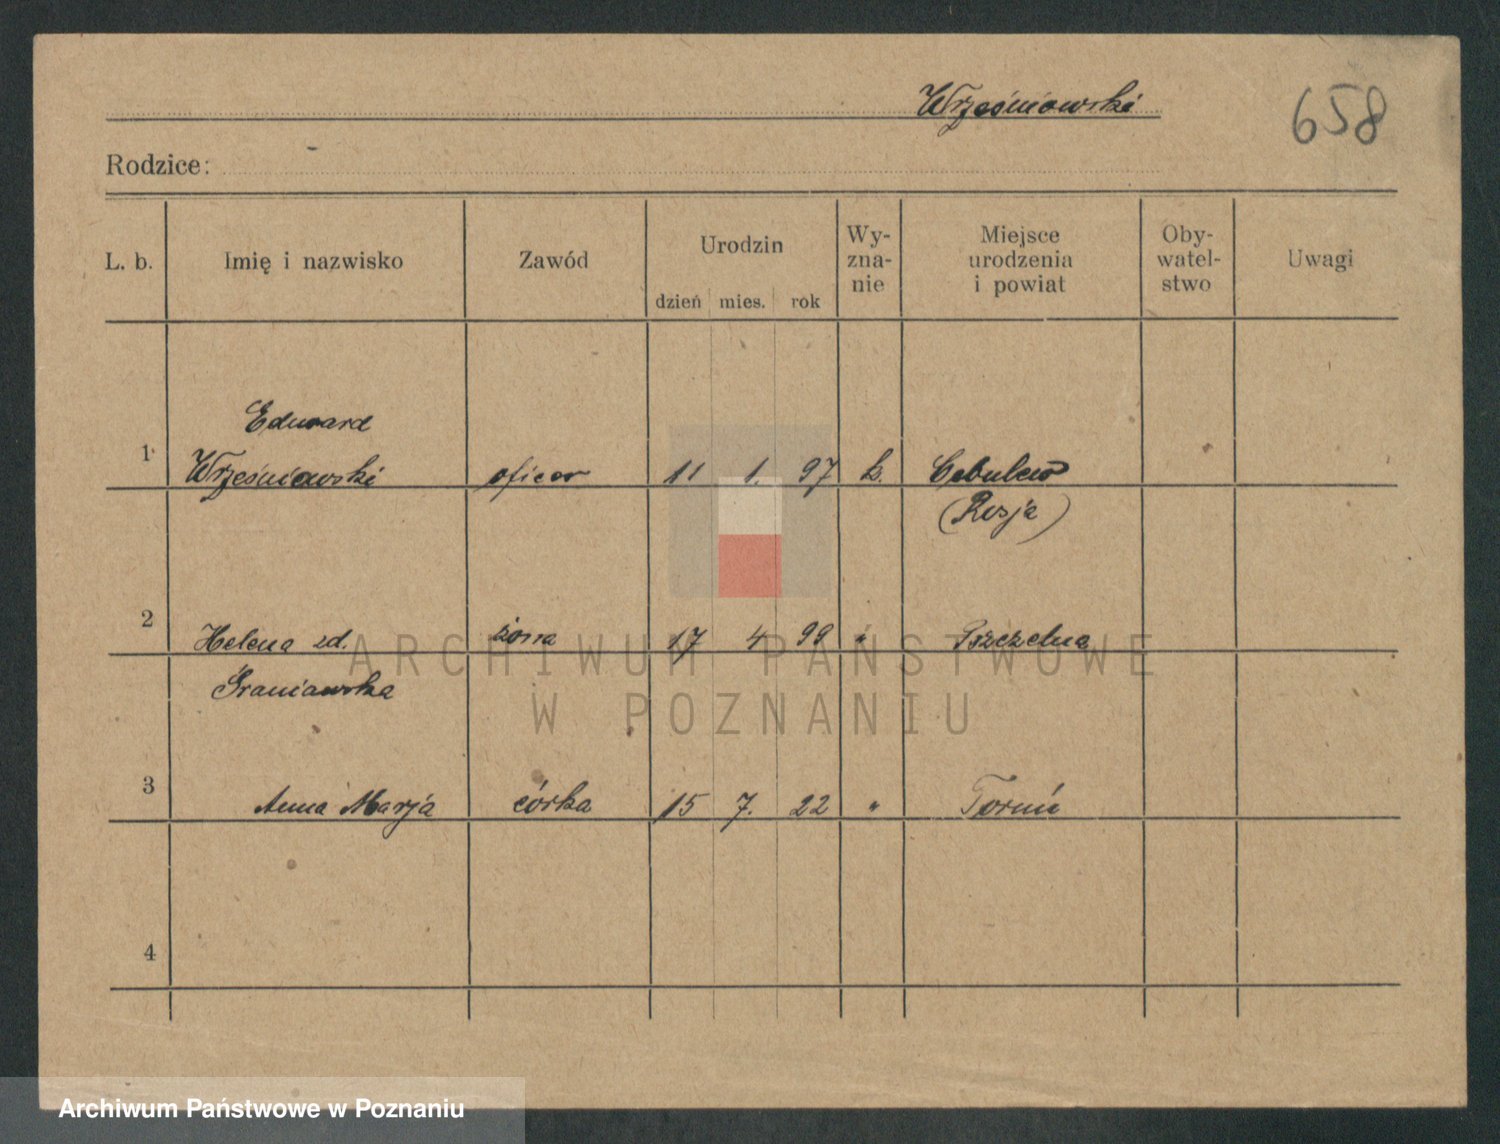 Wrześniowski
658
Rodzice:
L. b.
Imię i nazwisko
Zawód
Urodzin
dzień mies. rok
Wy-
zna-
nie
Miejsce
urodzenia
i powiat
Oby-
watel-
stwo
Uwagi
Edward
1 Wrześniowski oficer 11 1. 97 k. Cebulew
(Rosja)
2 Helena zd. żona 17 4 99 " Pszczelna
3 Anna Marja córka 15 7. 22 " Toruń
4
ARCHIWUM PAŃSTWOWE
W POZNANIU
Archiwum Państwowe w Poznaniu